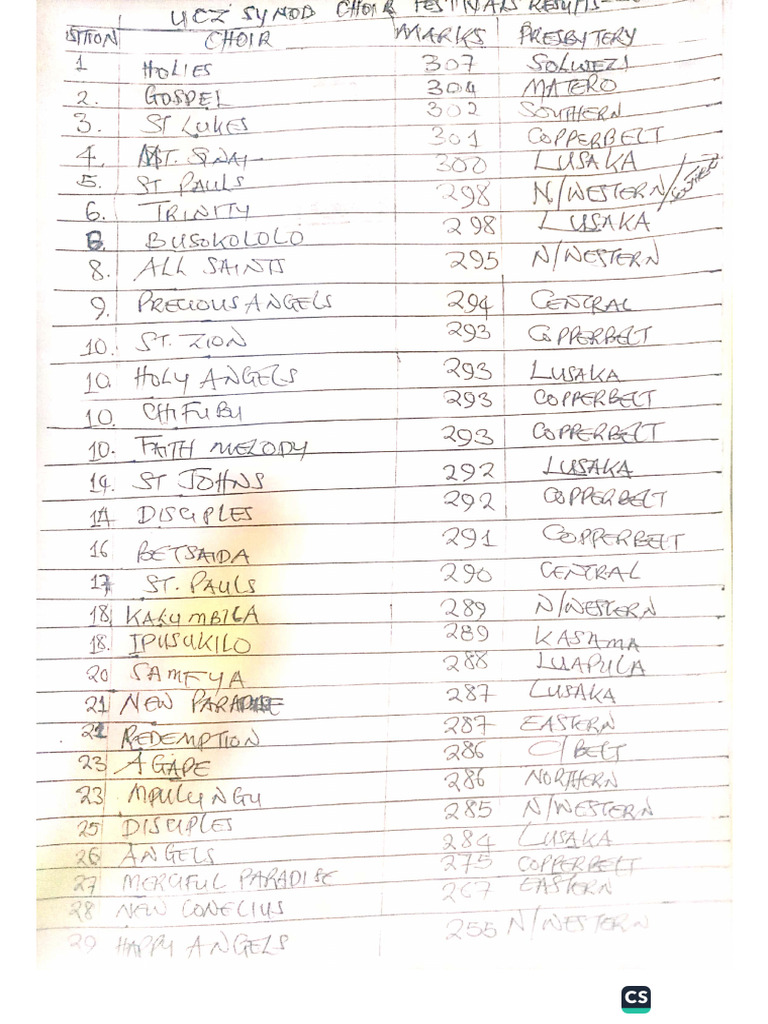 UCZ SYNOD CHOIR FESTIVALS RESULTS
SITION CHOIR MARKS PRESBYTERY
1 HOLIES 307 SOLWEZI
2. GOSPEL 304 MATERO
3. ST LUKES 302 SOUTHERN
4. MT. SINAI 301 COPPERBELT
5. ST PAULS 300 LUSAKA
6. TRINITY 298 N/WESTERN/
6. BUSOKOLOLO 298 LUSAKA
8. ALL SAINTS 295 N/WESTERN
9. PRECIOUS ANGELS 294 CENTRAL
10. ST. ZION 293 COPPERBELT
10. HOLY ANGELS 293 LUSAKA
10 CHIFUBU 293 COPPERBELT
10. FAITH MELODY 293 COPPERBELT
14. ST JOHNS 292 LUSAKA
14 DISCIPLES 292 COPPERBELT
16 BETSAIDA 291 COPPERBELT
17 ST. PAULS 290 CENTRAL
18 KAKUMBILA 289 N/WESTERN
18. IPUSUKILO 289 KASAMA
20 SAMFYA 288 LUAPULA
21 NEW PARADISE 287 LUSAKA
21 REDEMPTION 287 EASTERN
23 AGAPE 286 C/BELT
23 MPULUNGU 286 NORTHERN
25 DISCIPLES 285 N/WESTERN
26 ANGELS 284 LUSAKA
27 MERCIFUL PARADISE 275 COPPERBELT
28 NEW CONELIUS 267 EASTERN
29 HAPPY ANGELS 255 N/WESTERN
CS